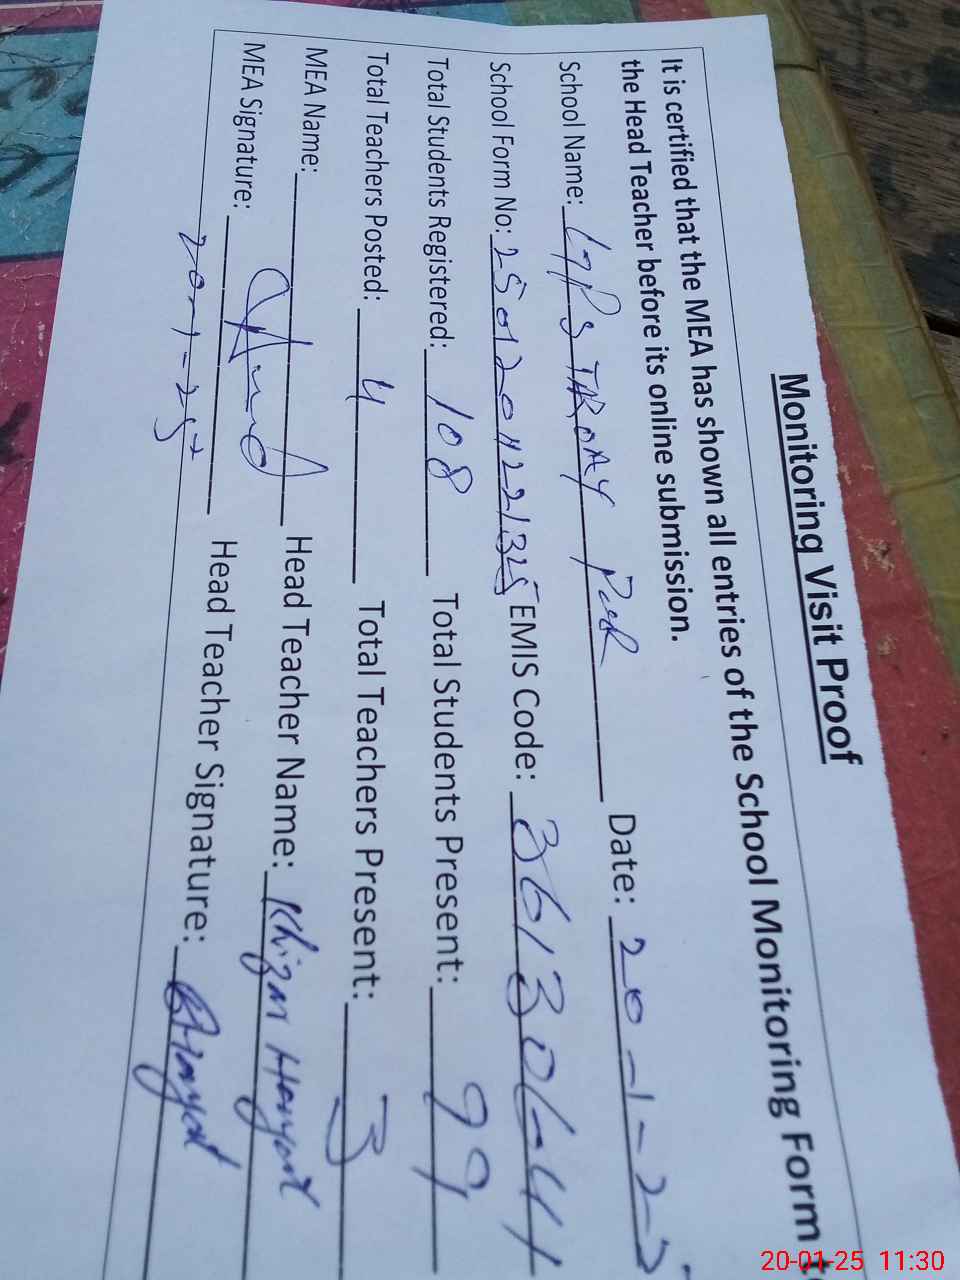 Monitoring Visit Proof
It is certified that the MEA has shown all entries of the School Monitoring Form t
the Head Teacher before its online submission.
School Name: GPS TROAY Date: 20-1-2
School Form No: 25012011221325 EMIS Code: 36130144
Total Students Registered: 108 Total Students Present: 99
Total Teachers Posted: 4 Total Teachers Present: 3
MEA Name: Head Teacher Name: Khizar Hayat
MEA Signature: Head Teacher Signature:
20-1-25
20-01-25 11:30